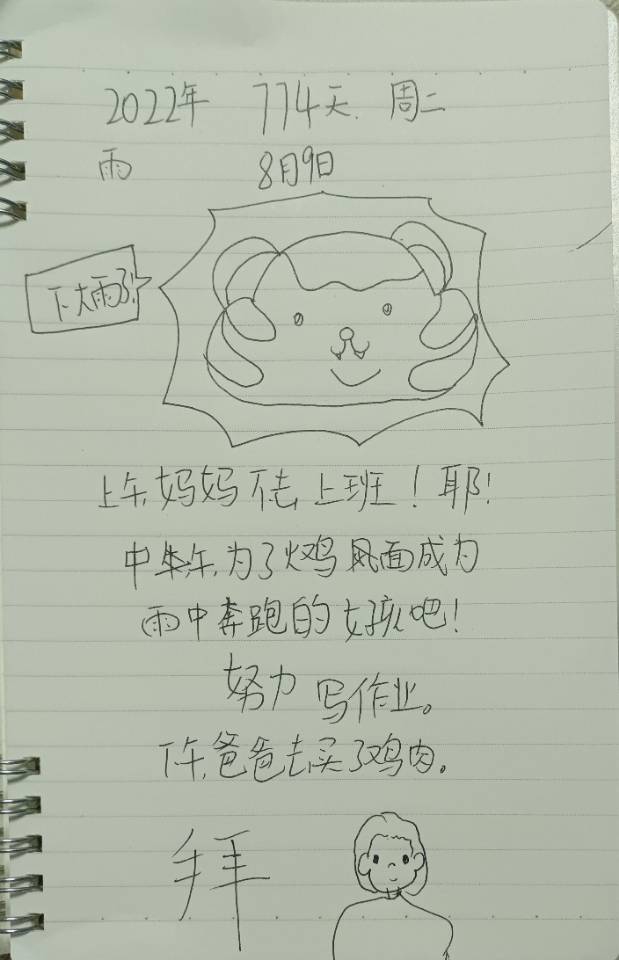 2022年 774天 周二
雨 8月9日
下大雨了!
上午妈妈不去上班!耶!
中午为了火鸡风面成为
雨中奔跑的女孩吧!
努力写作业。
下午爸爸去买了鸡肉。
拜